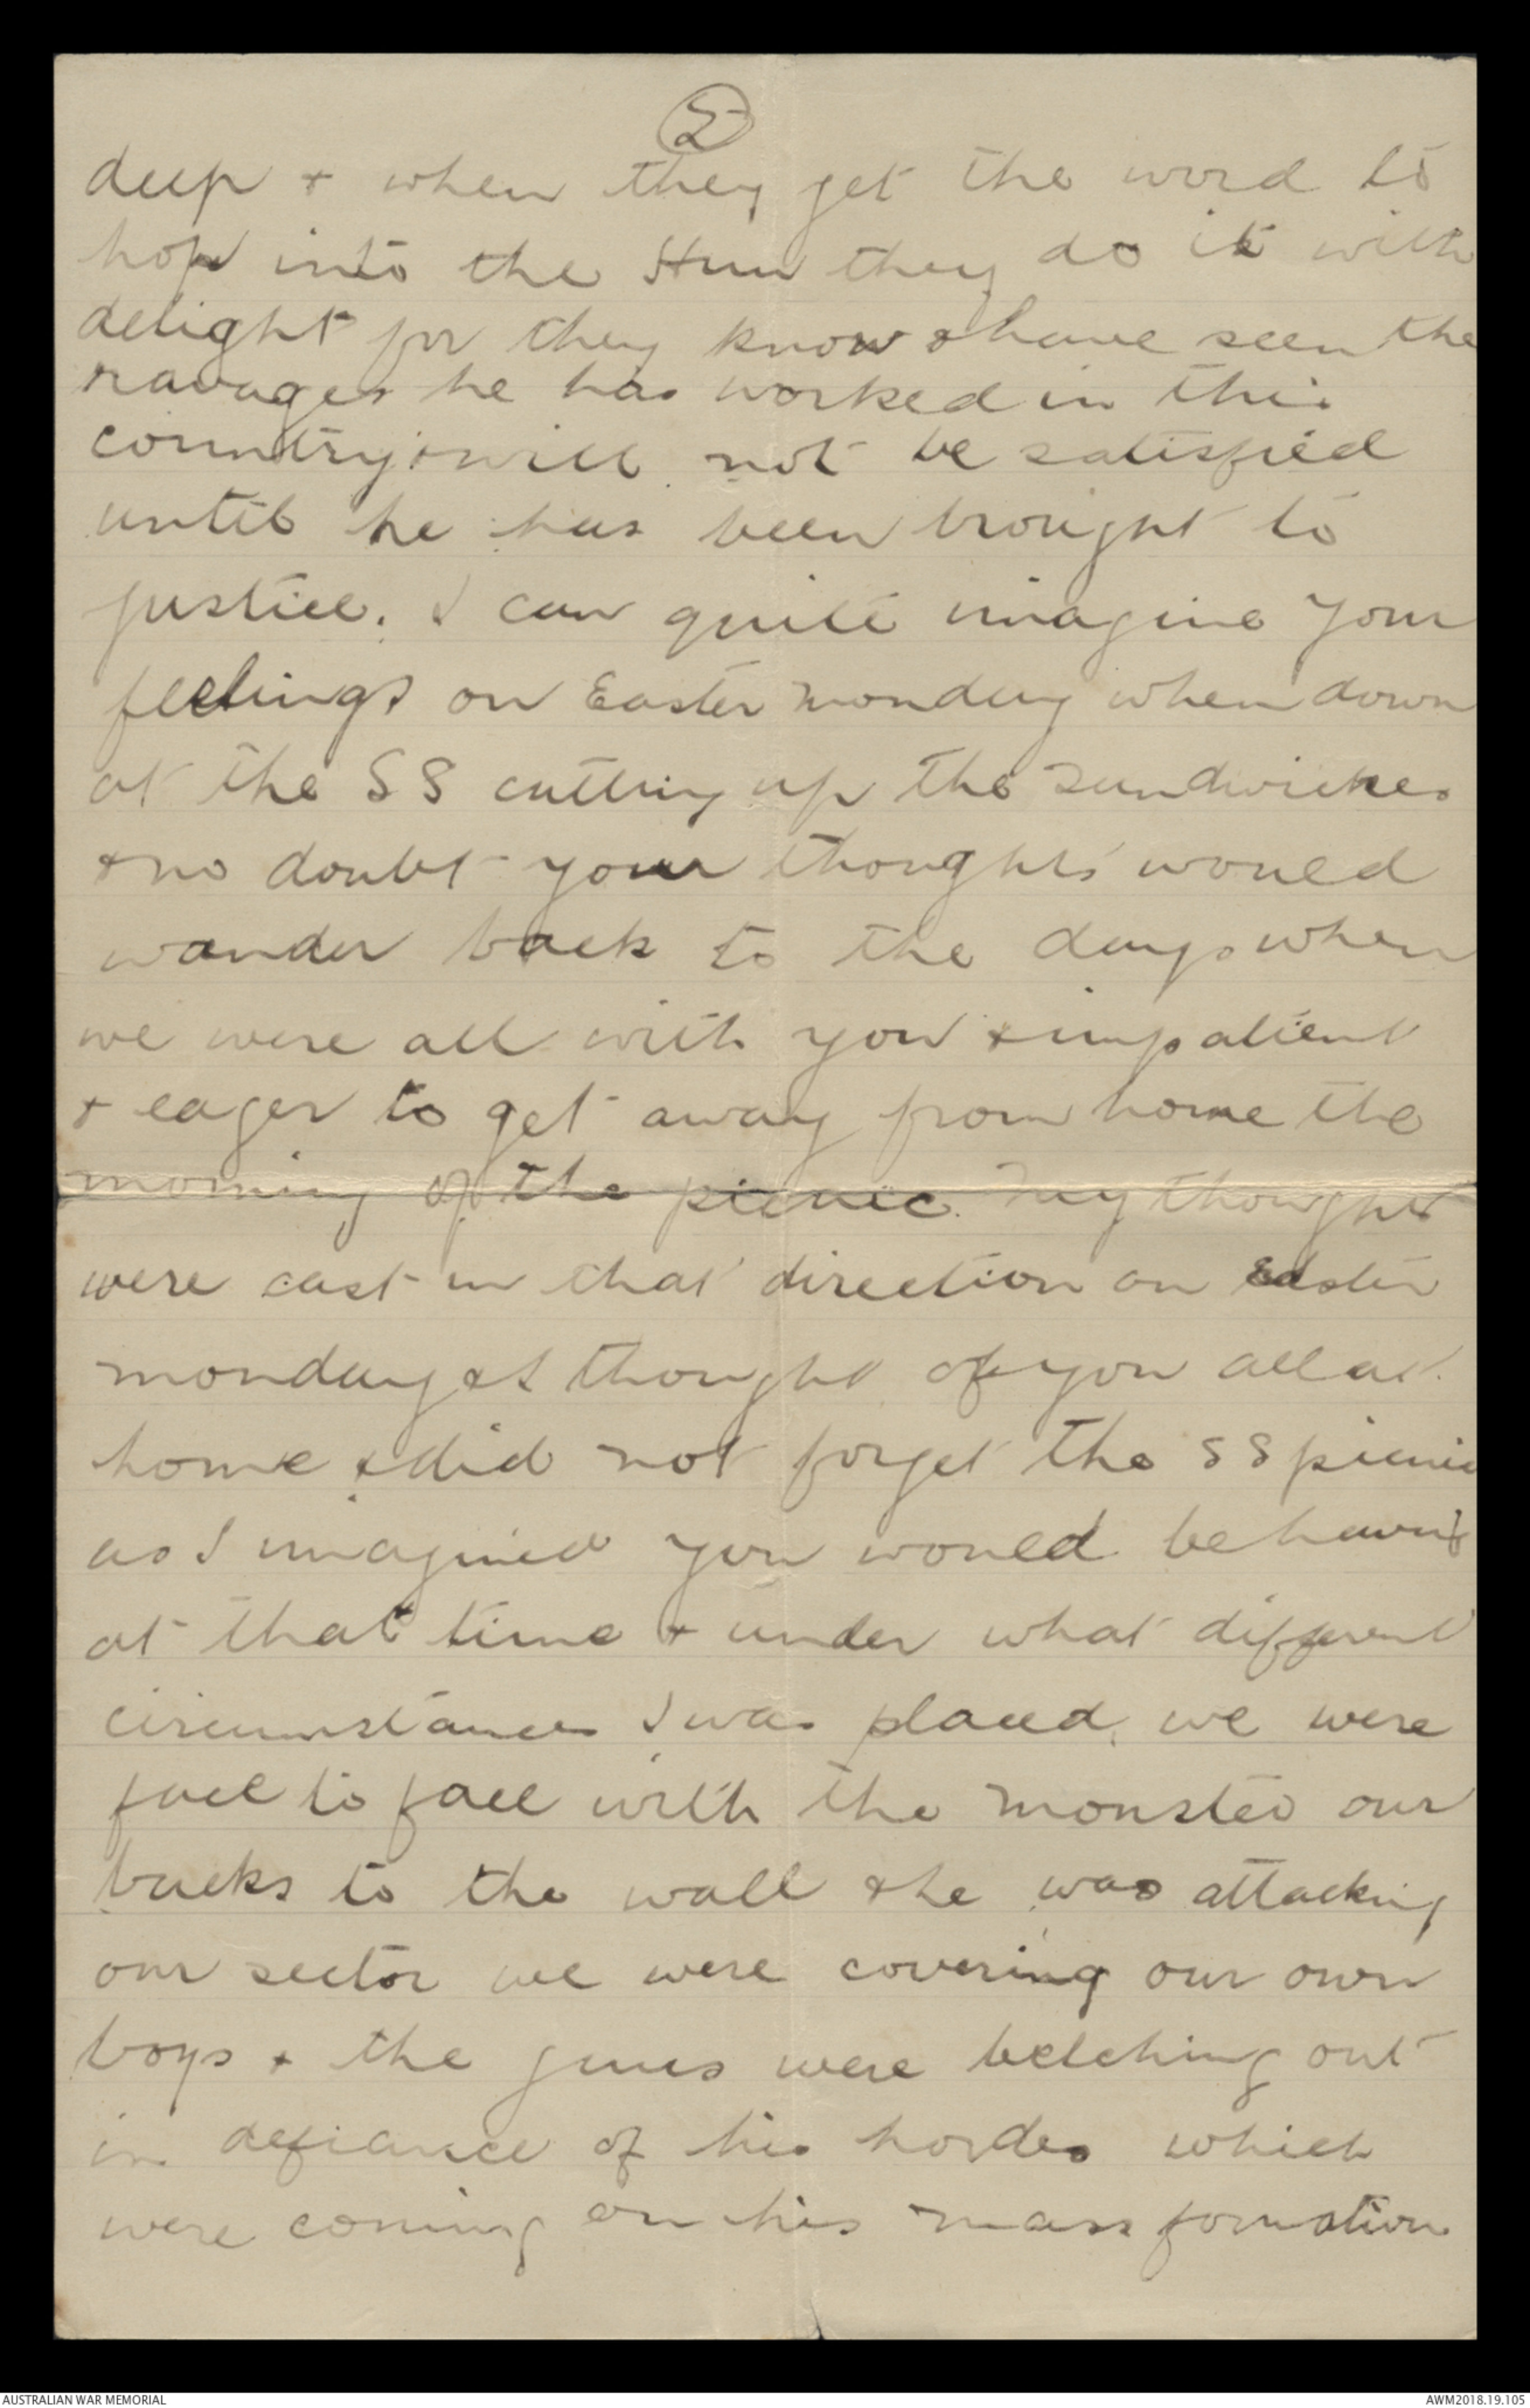 2
deep & when they get the word to
hop into the Hun they do it with
delight for they know & have seen the
ravages he has worked in this
country & will not be satisfied
until he has been brought to
justice. I can quite imagine your
feelings on Easter Monday when down
at the SS cutting up the sandwiches
& no doubt your thoughts would
wander back to the days when
we were all with you & impatient
& eager to get away from home the
morning of the picnic. My thoughts
were cast in that direction on Easter
Monday & I thought of you all at
home & did not forget the SS picnic
as I imagined you would be having
at that time & under what different
circumstances I was placed, we were
face to face with the monster our
backs to the wall & he was attacking
our sector we were covering our own
boys & the guns were belching out
in defiance of his hordes which
were coming on his mass formation
AUSTRALIAN WAR MEMORIAL
AWM2018.19.105